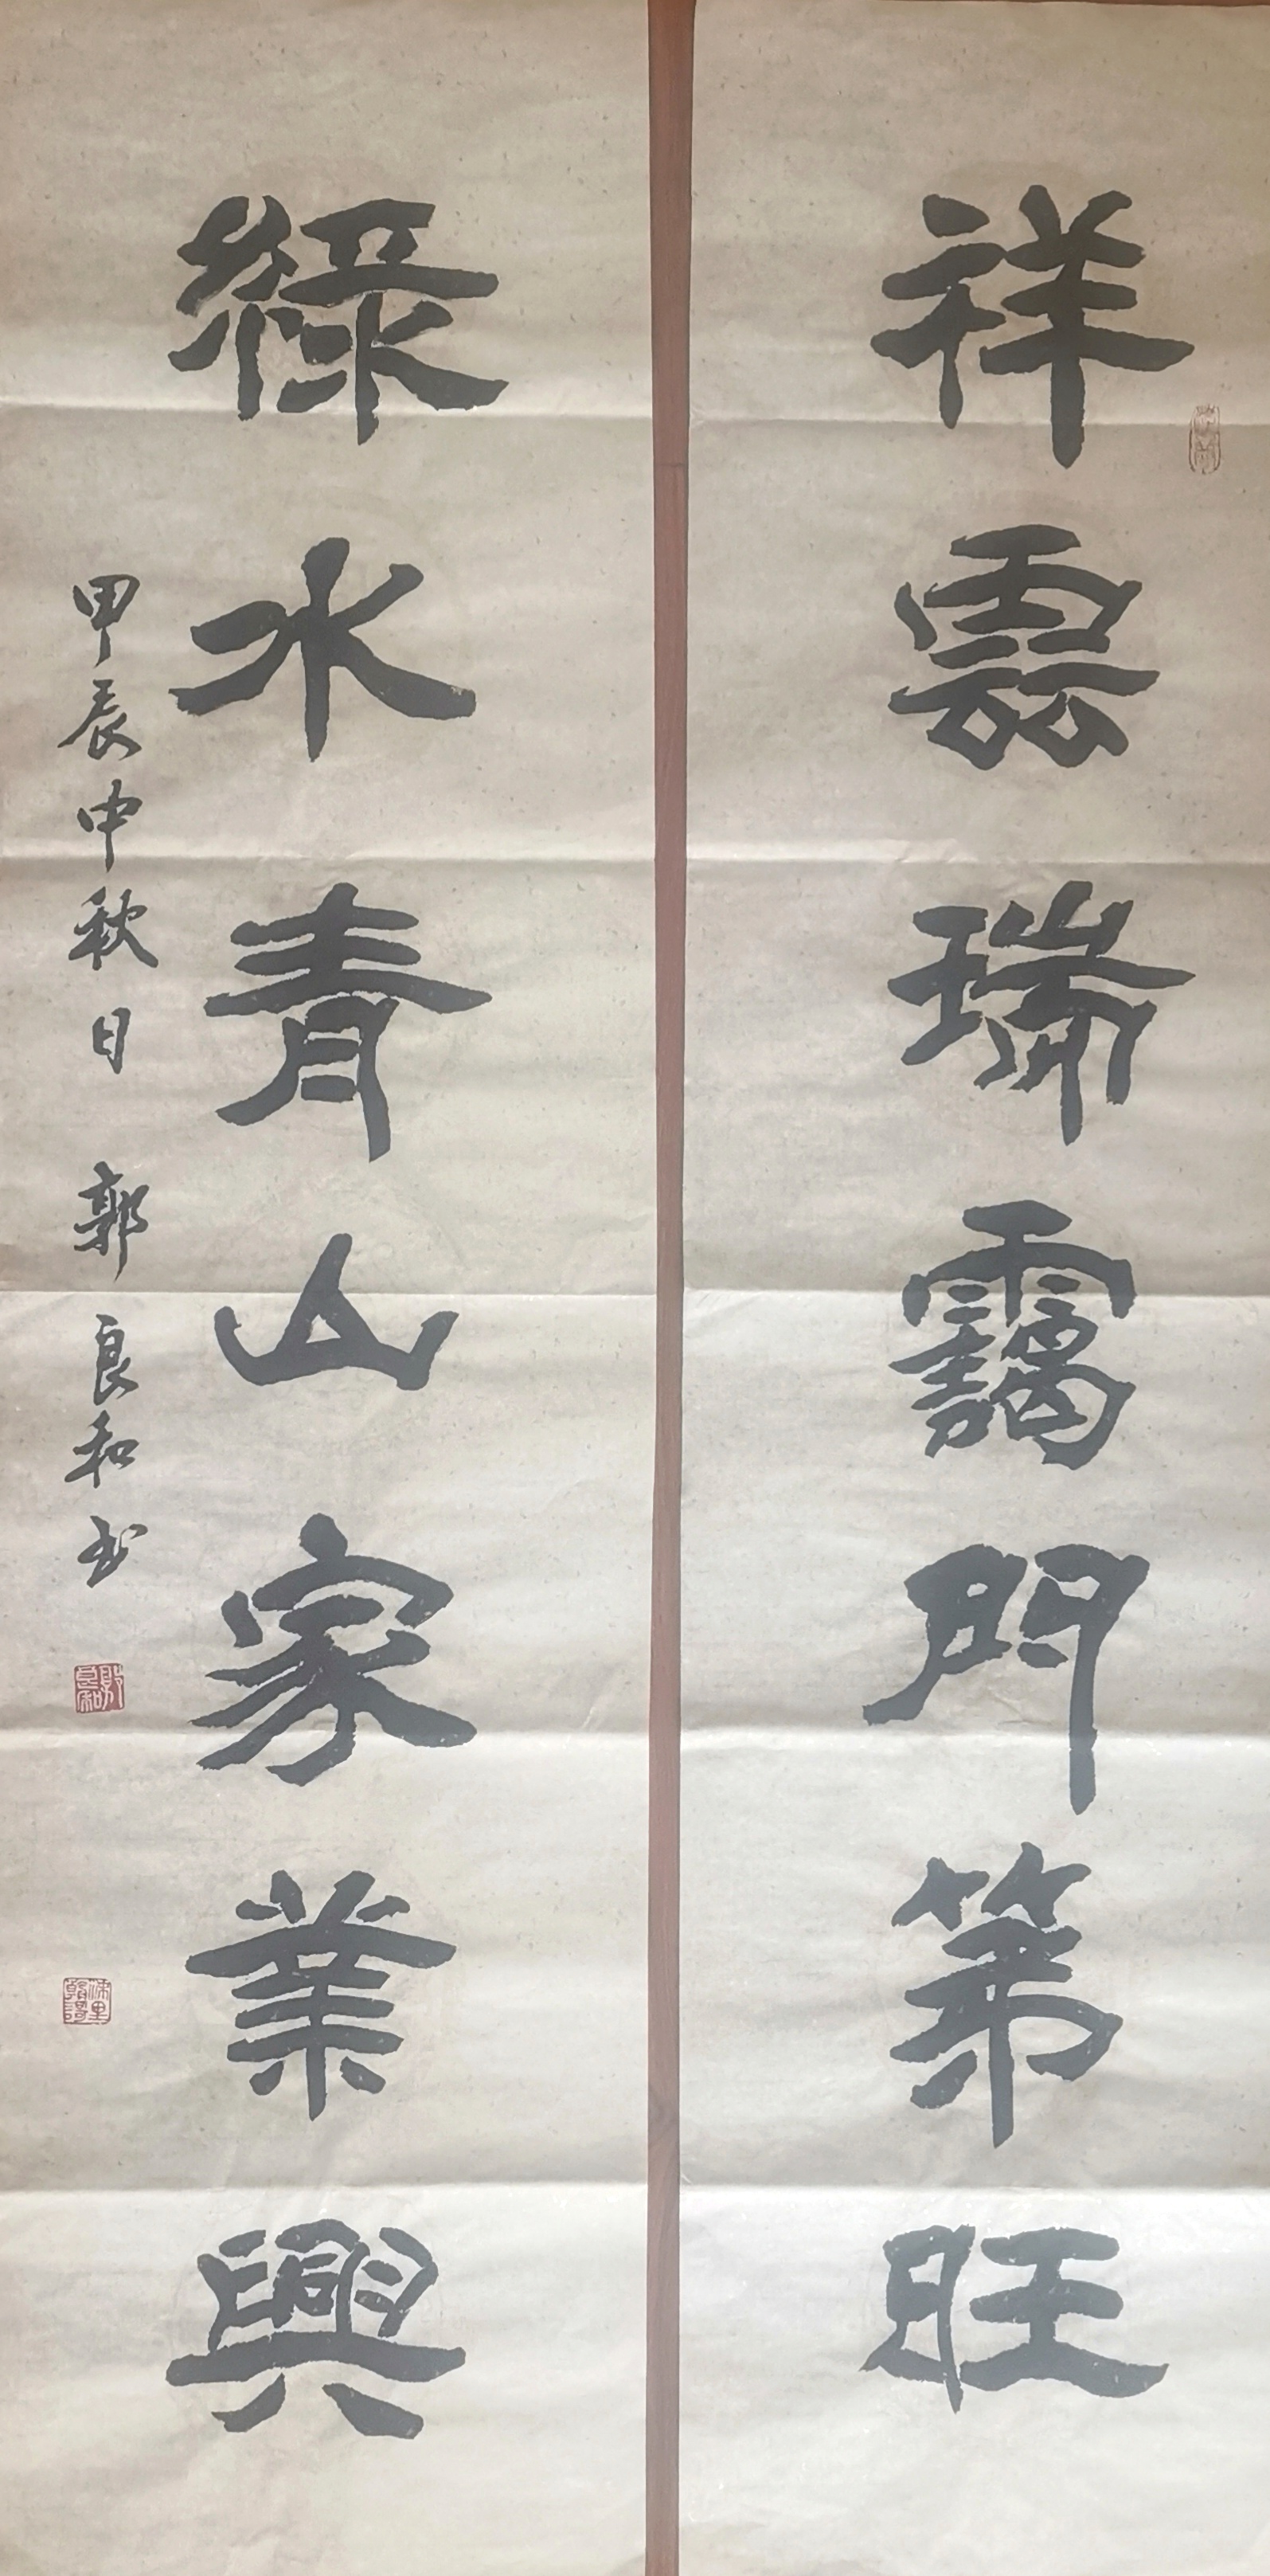 祥雲瑞靄門第旺
綠水青山家業興
甲辰中秋日 郭良和书